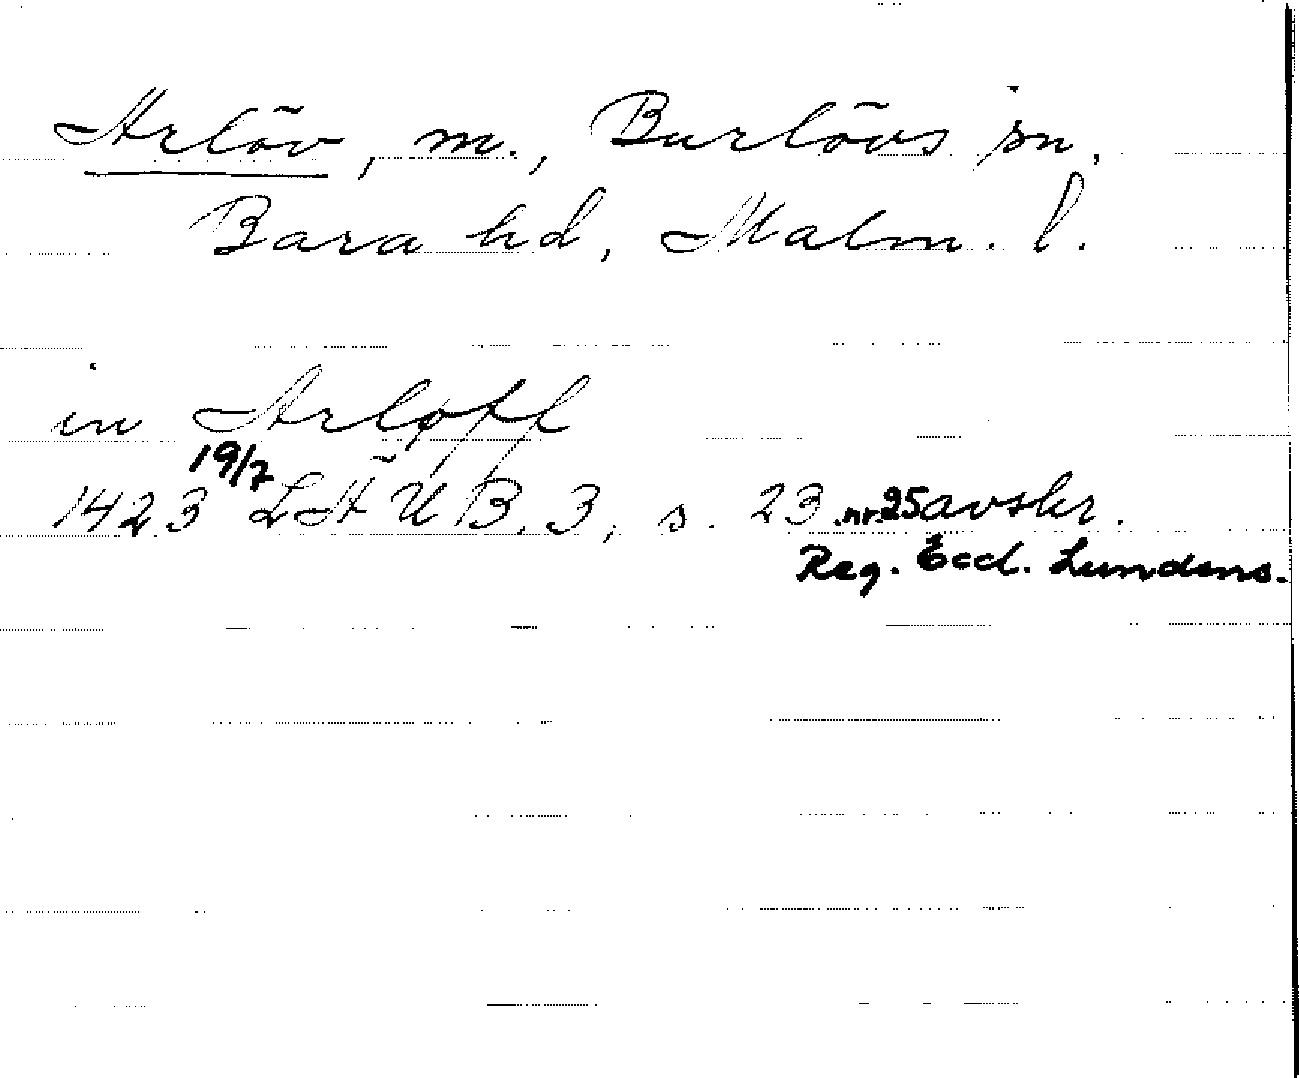 Arlöv, m., Burlövs sn,
Bara hd, Malm. l.
in Arløff
1423 19/7 LÄUB. 3, s. 23 nr. 25 avskr.
Reg. Eccl. Lundens.